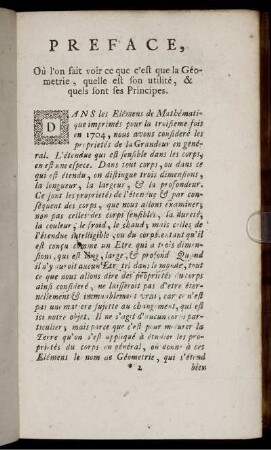 PREFACE,
Où l'on fait voir ce que c'est que la Géo-
metrie, quelle est son utilité, &
quels sont ses Principes.
DANS les Elémens de Mathémati-
que imprimés pour la troisiéme fois
en 1704, nous avons consideré les
proprietés de la Grandeur en géné-
ral. L'étendue qui est sensible dans les corps,
en est une espece. Dans tout corps, ou dans ce
qui est étendu, on distingue trois dimensions,
la longueur, la largeur, & la profondeur.
Ce sont les proprietés de l'étendue & par con-
séquent des corps, que nous allons examiner,
non pas celles des corps sensibles, la dureté,
la couleur, le froid, le chaud, mais celles de
l'étendue intelligible, ou du corps entant qu'il
est conçu comme un Etre qui a trois dimen-
sions, qui est long, large, & profond. Quand
il n'y auroit aucun Etre tel dans le monde, tout
ce que nous allons dire des proprietés du corps
ainsi consideré, ne laisseroit pas d'etre éter-
nellement & immuablement vrai, car ce n'est
pas une matiere sujette au changement, qui est
ici notre objet. Il ne s'agit d'aucun corps par-
ticulier, mais parce que c'est pour mesurer la
Terre qu'on s'est appliqué à étudier les pro-
prietés du corps en général, on donne à ces
Elémens le nom de Géometrie, qui s'étend
* 2 bien